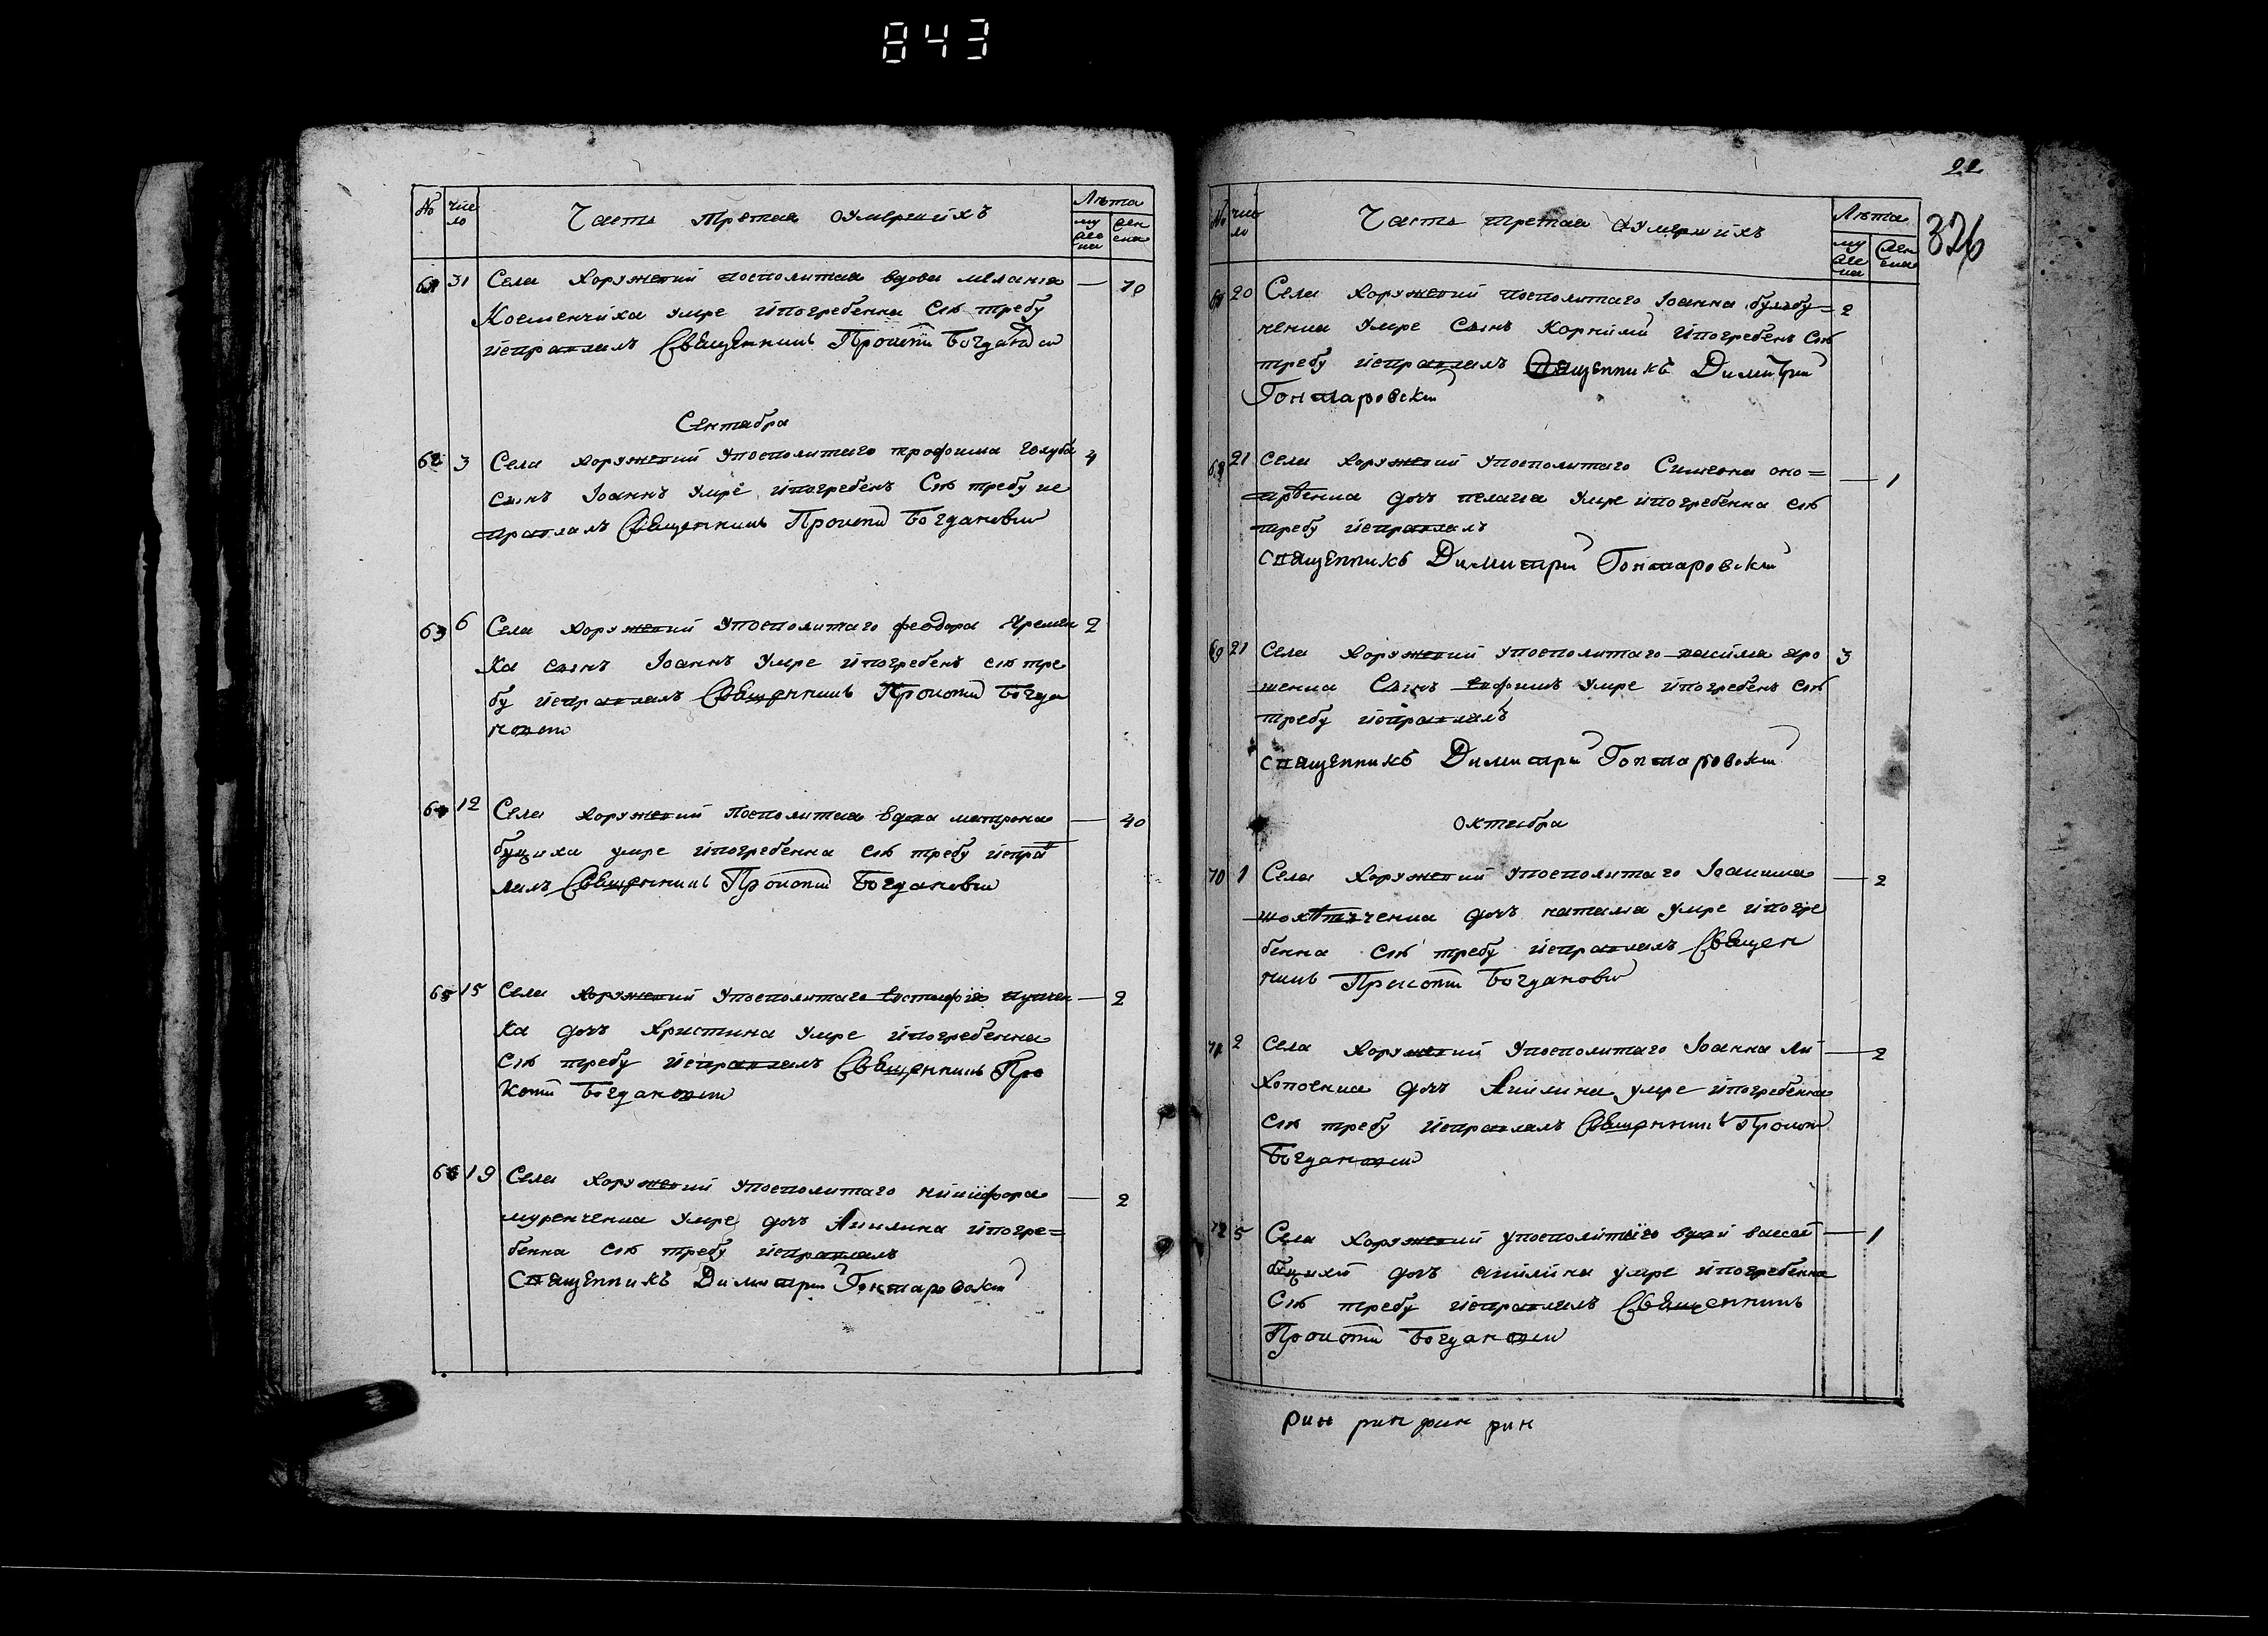 843
№ число Часть Третая оумершихъ Лѣта мужеска женска
61 31 Села Хоружовки посполитая вдова меланія — 70
умре и погребенна Сію требу
исправлялъ Священникъ Прокопій Богдановичъ
Сентября
62 3 Села Хоружовки у посполитаго трофима голуба 4
Сынъ Іоаннъ умре и погребенъ Сію требу ис
правлялъ Священникъ Прокопій Богдановичъ
63 6 Села Хоружовки у посполитаго феодора Яремен 2
ка сынъ Іоаннъ умре и погребенъ сію тре
бу исправлялъ Священникъ Прокопій Богда
новичъ
64 12 Села Хоружовки посполитая вдова матрона — 40
буциха умре и погребенна сію требу исправ
лялъ Священникъ Прокопій Богдановичъ
65 15 Села Хоружовки у посполитаго Евстафія — 2
ка дочъ Христина умре и погребенна
Сію требу исправлялъ Священникъ Про
копій Богдановичъ
66 19 Села Хоружовки у посполитаго никифора — 2
муренченка умре дочъ Акилина и погре=
бенна сію требу исправлялъ
Священникъ Димитрій Гонтаровскій
22
326
№ число Часть третая оумершихъ Лѣта мужеска женска
20 Села Хоружовки посполитаго Іоанна бульбу= 2
ненка умре Сынъ Корнилій и погребенъ Сію
требу исправлялъ Священникъ Димитрій
Гонтаровскій
68 21 Села Хоружовки у посполитаго Симеона оно= — 1
дочъ пелагія умре и погребенна сію
требу исправлялъ
Священникъ Димитрій Гонтаровскій
69 21 Села Хоружовки у посполитаго яро 3
шенка Сынъ умре и погребенъ сію
требу исправлялъ
Священникъ Димитрій Гонтаровскій
Октября
70 1 Села Хоружовки у посполитаго Іоакима — 2
дочъ наталія умре и погре
бенна сію требу исправлялъ Священ
никъ Прокопій Богдановичъ
71 2 Села Хоружовки у посполитаго Іоанна Ли — 2
хопоенка дочъ Акилина умре и погребенна
сію требу исправлялъ Священникъ Прокопій
Богдановичъ
72 5 Села Хоружовки у посполитаго вдови — 1
буцихи дочъ акилина умре и погребенна
Сію требу исправлялъ Священникъ
Прокопій Богдановичъ
рин рин рин рин